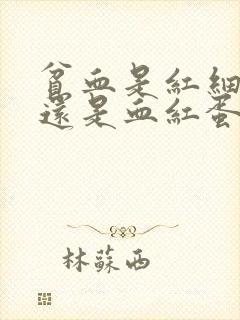 貧血是紅細
還是血紅蛋
林蘇西